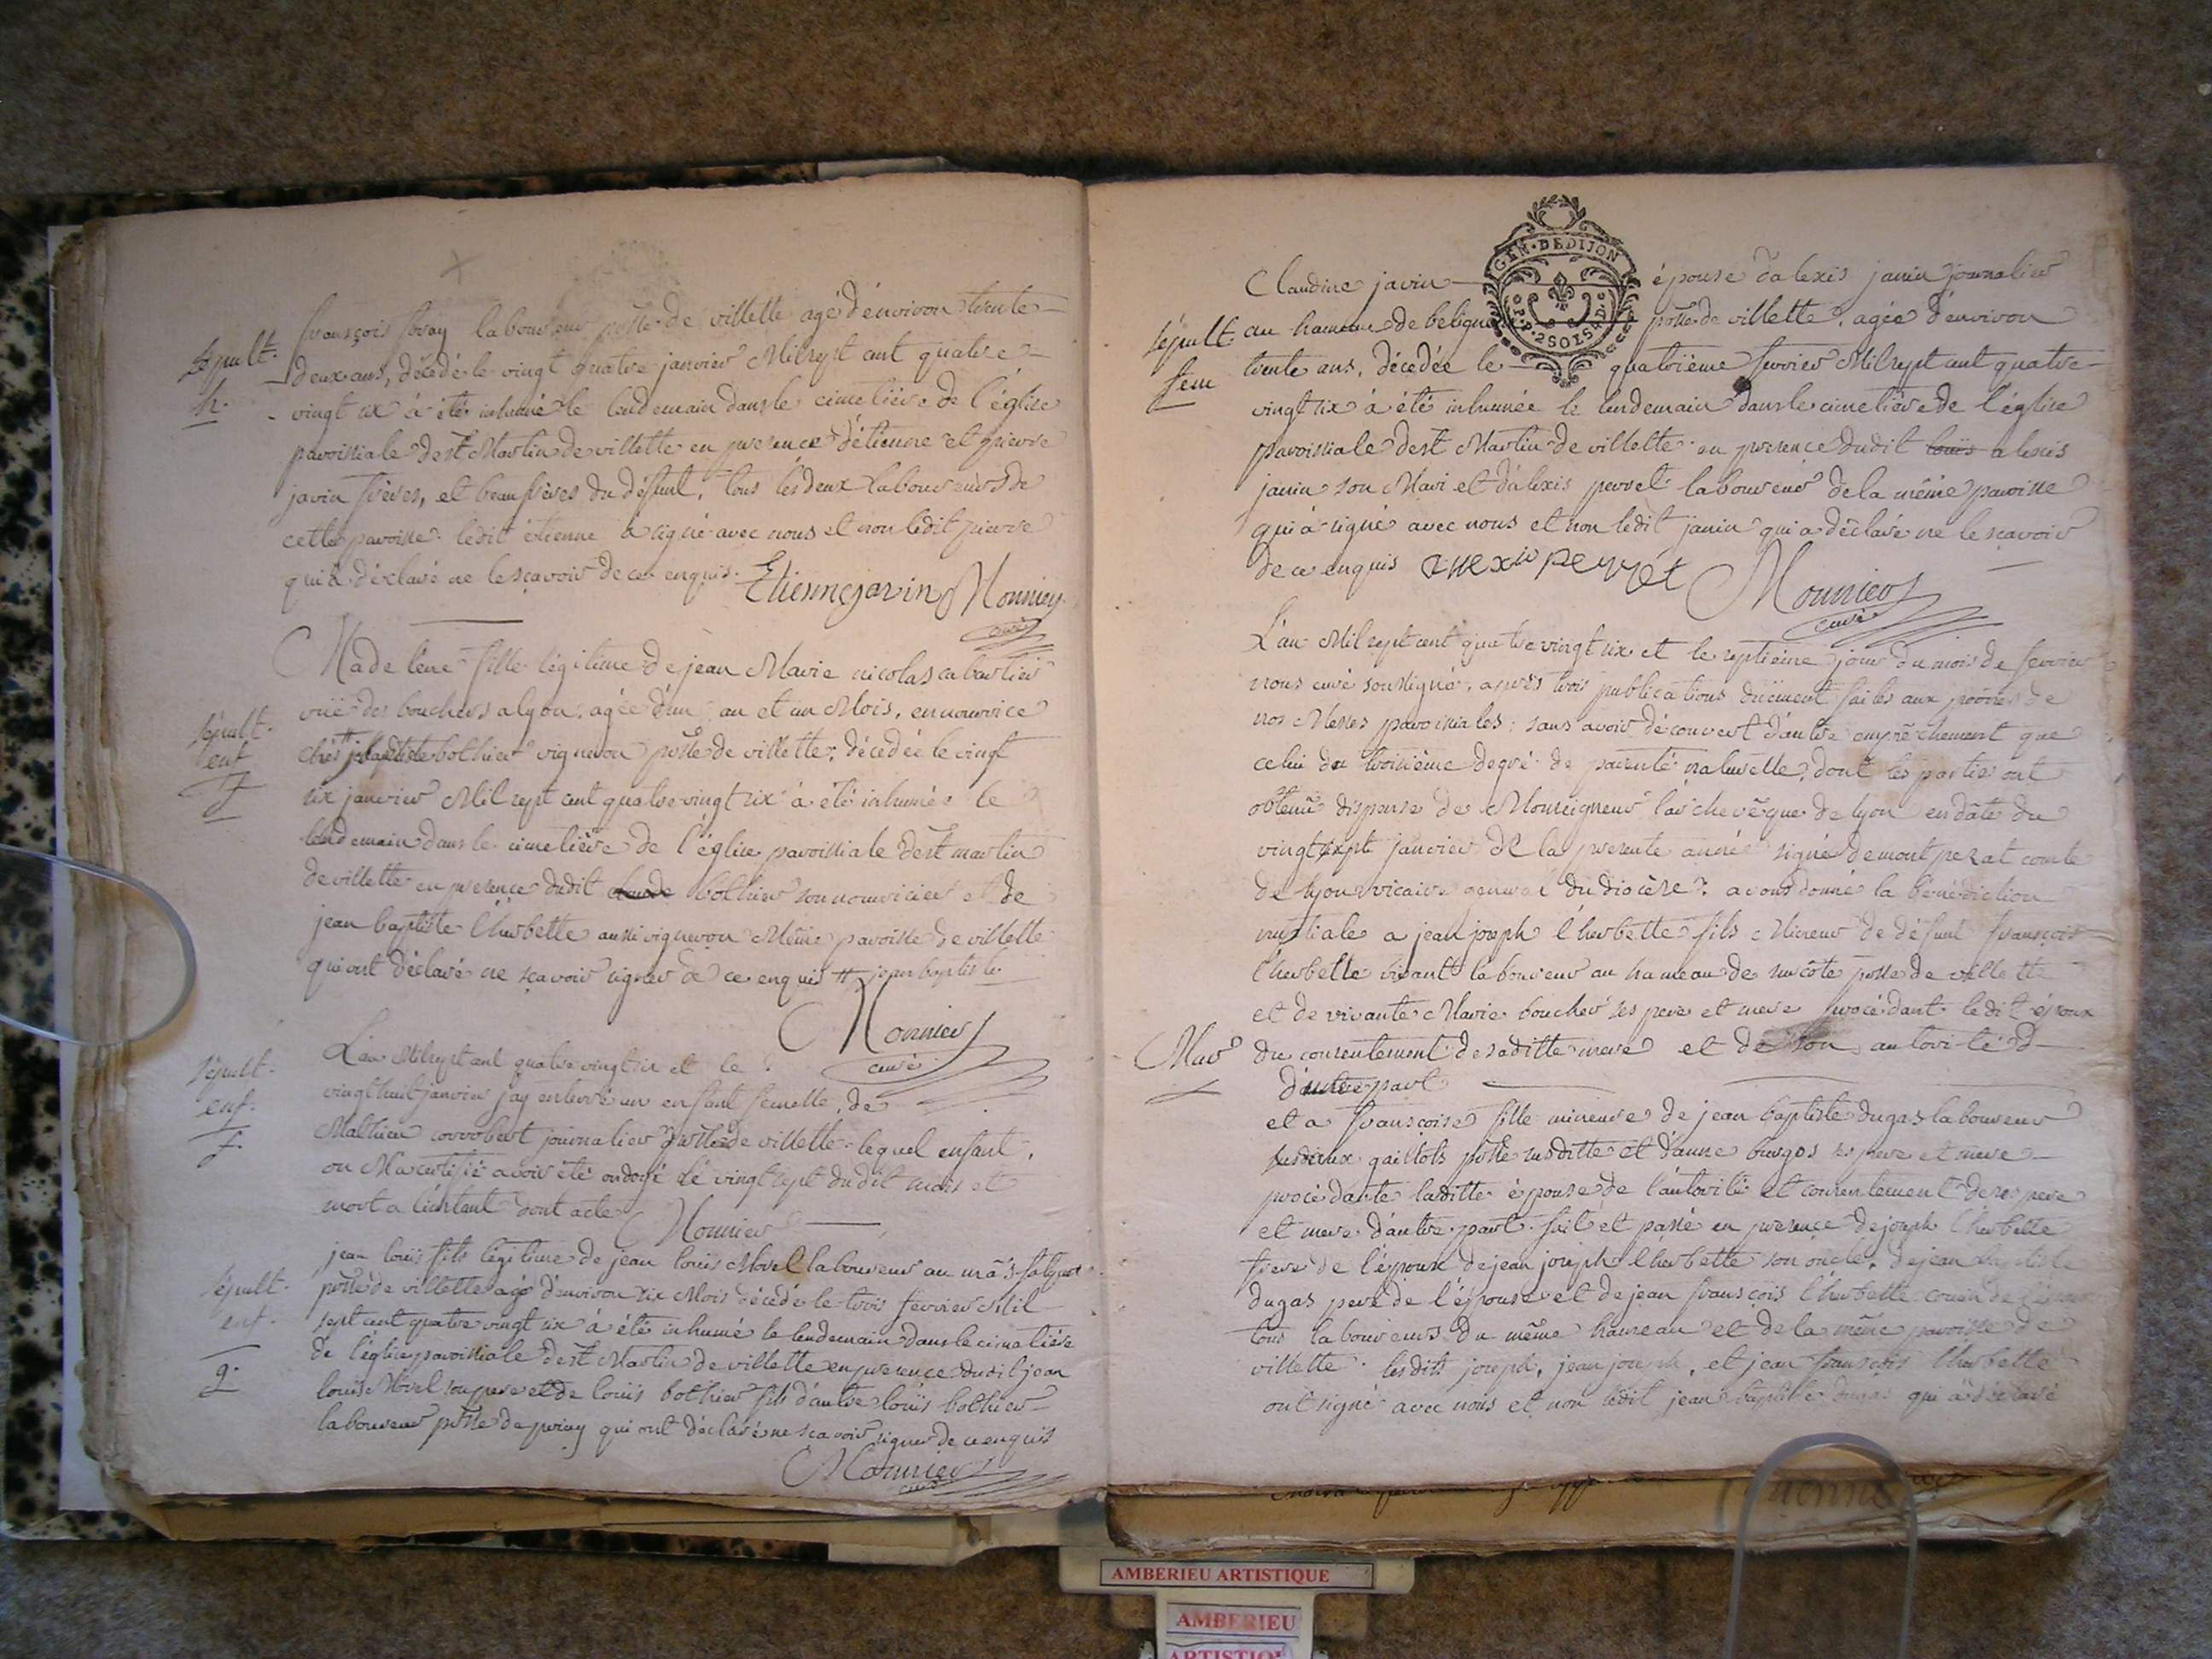 françois foray laboureur psse de villette agé d'environ trente
sépult. h.
deux ans, décédé le vingt quatre janvier Mil sept cent quatre
vingt six à été inhumé le lendemain dans le cimetière de l'église
paroissiale de st Martin de villette en presence d'étienne et pierre
javin frères, et beaufrères du défunt, tous les deux Laboureurs de
cette paroisse. ledit étienne à signé avec nous et non ledit pierre
qui a déclaré ne le sçavoir de ce enquis. Etienne javin Monnier
curé
Madeleine fille légitime de jean Marie nicolas cabartier
ruë des bouchers a lyon, agée d'un an et un Mois, en nourrice
sépult. enf f
chés # bothier vigneron psse de villette, décedée le vingt
six janvier Mil sept cent quatre vingt six à été inhumée le
lendemain dans le cimetière de l'église paroissiale de st martin
de villette en presence dudit claude bothier son nourricier et de
jean baptiste l'herbette aussi vigneron Même paroisse de villette
qui ont déclaré ne sçavoir signer de ce enquis # jean baptiste
Monnier
curé
L'an Mil sept cent quatre vingt six et le
sépult. enf. f.
vingt huit janvier j'ay enterré un enfant femelle, de
Mathieu corrobert journalier psse de villette lequel enfant,
on M'a certifié avoir été ondoyé le vingt sept dudit mois et
mort a l'instant dont acte Monnier
jean louis fils légitime de jean louis Morel laboureur au mâs
sépult. enf. g.
psse de villette agé d'environ six Mois décédé le trois fevrier Mil
sept cent quatre vingt six à été inhumé le lendemain dans le cimetière
de l'église paroissiale de st Martin de villette en presence dudit jean
louis Morel son pere et de louis bothier fils d'autre louis bothier
laboureur psse de priay qui ont déclaré ne sçavoir signer de ce enquis
Monnier
curé
GEN. DE DIJON
2 SOLS
Claudine javin épouse d'alexis janin journalier
sépult. fem
au hameau de béligneu psse de villette, agée d'environ
trente ans, décedée le quatrième fevrier Mil sept cent quatre
vingt six à été inhumée le lendemain dans le cimetière de l'église
paroissiale de st Martin de villette en presence dudit louis alexis
janin son Mari et d'alexis perret laboureur de la même paroisse
qui à signé avec nous et non ledit janin qui a déclaré ne le sçavoir
de ce enquis allexis perret Monnier
curé
L'an Mil sept cent quatre vingt six et le septième jour du mois de fevrier
nous curé soussigné, après trois publications duëment faites aux prônes de
nos Messes paroissiales, sans avoir découvert d'autre empêchement que
celui du troisième degré de parenté naturelle, dont les parties ont
obtenu dispense de Monseigneur l'archevêque de lyon en dâte du
vingt sept janvier de la presente année signé de montpezat comte
de lyon vicaire general du diocèse, avons donné la bénédiction
nuptiale a jean joseph l'herbette fils Mineur de défunt françois
l'herbette vivant laboureur au hameau de sur côte psse de villette
et de vivante Marie boucher ses pere et mere procédant ledit époux
Mar
du consentement de saditte mere et de son autorité
d'une part
et a françoise fille mineure de jean baptiste dugas laboureur
gaillots psse susditte et d'anne burgos ses pere et mere
procédante laditte épouse de l'autorité et consentement de ses pere
et mere d'autre part. fait et passé en presence de joseph l'herbette
frere de l'époux de jean joseph l'herbette son oncle, de jean baptiste
dugas pere de l'épouse et de jean françois l'herbette cousin de
tous laboureurs du même hameau et de la même paroisse de
villette. lesdits joseph, jean joseph, et jean françois l'herbette
ont signé avec nous et non ledit jean baptiste dugas qui à déclaré
AMBERIEU ARTISTIQUE
AMBERIEU
ARTISTIQUE